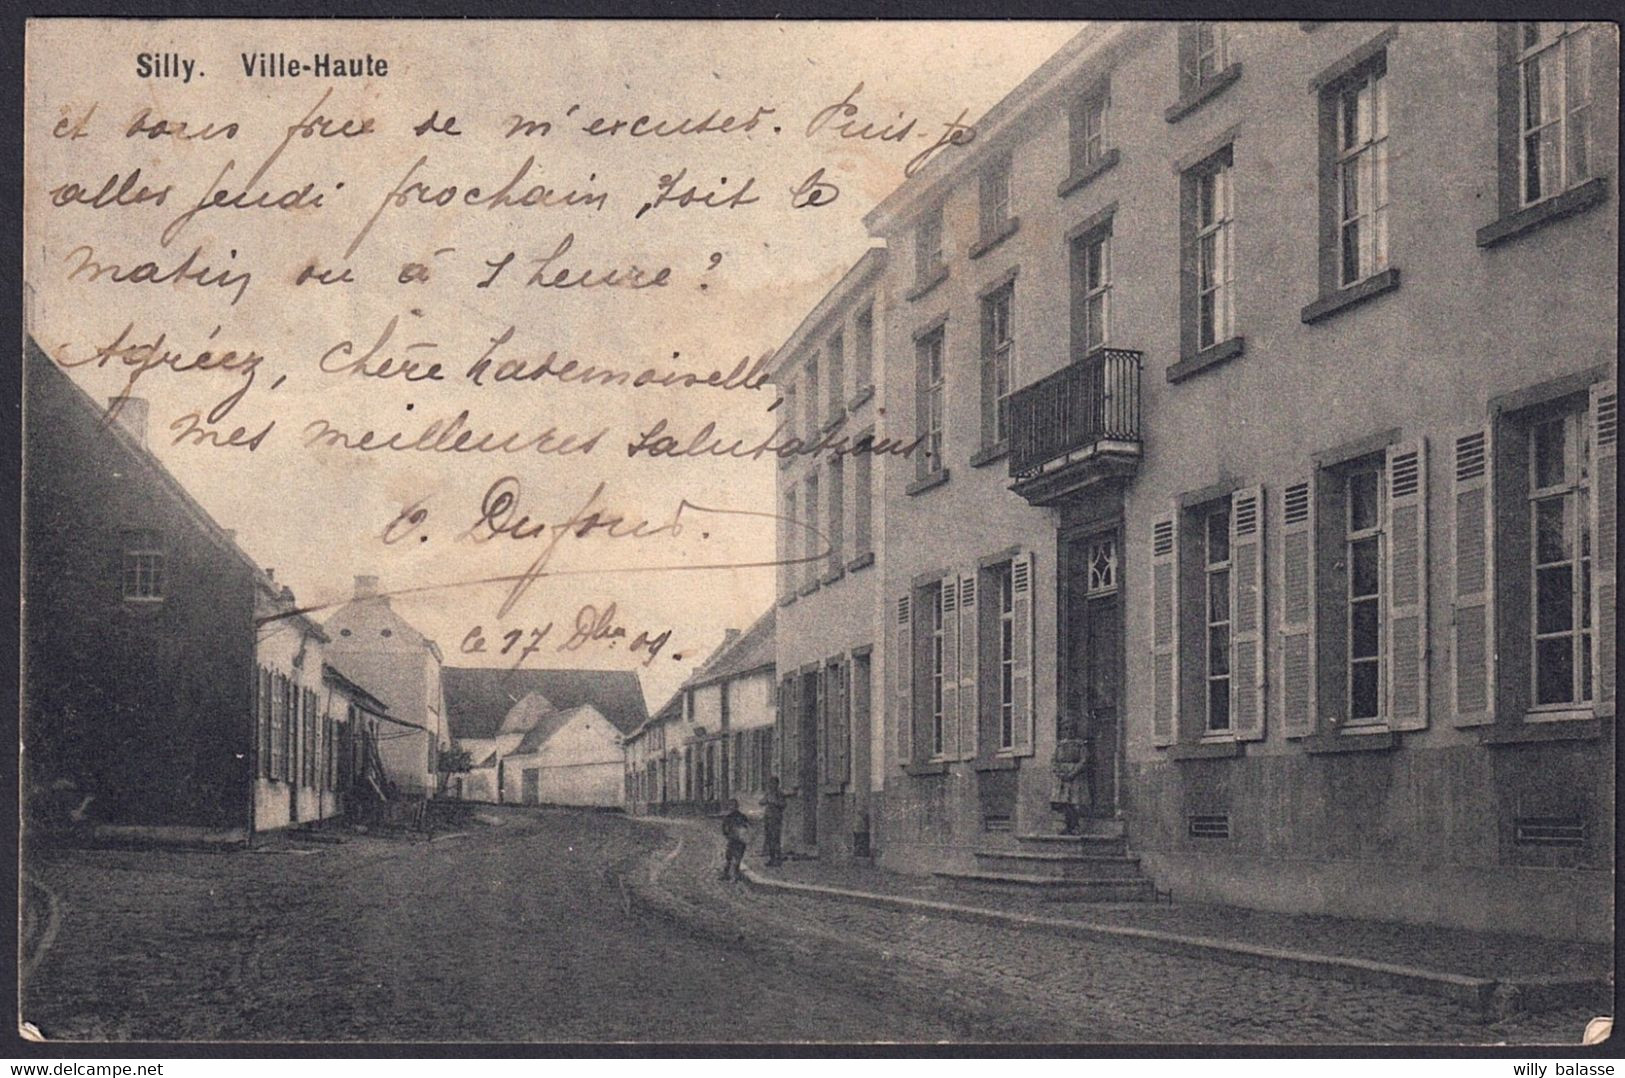 Silly. Ville-Haute
et vous prie de m'excuser. Puis-je
aller jeudi prochain, soit le
matin ou à 1 heure?
Agréez, chère Mademoiselle,
mes meilleures salutations.
O. Dufour.
le 17 Dbre 09.
willy balasse